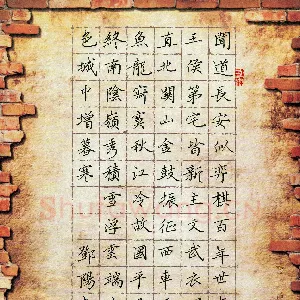 聞道長安似弈棋百年世
王侯第宅皆新主文武衣
直北關山金鼓振征西車
魚龍寂寞秋江冷故國平
終南陰嶺秀積雪浮雲端
色城中增暮寒 鄧陽